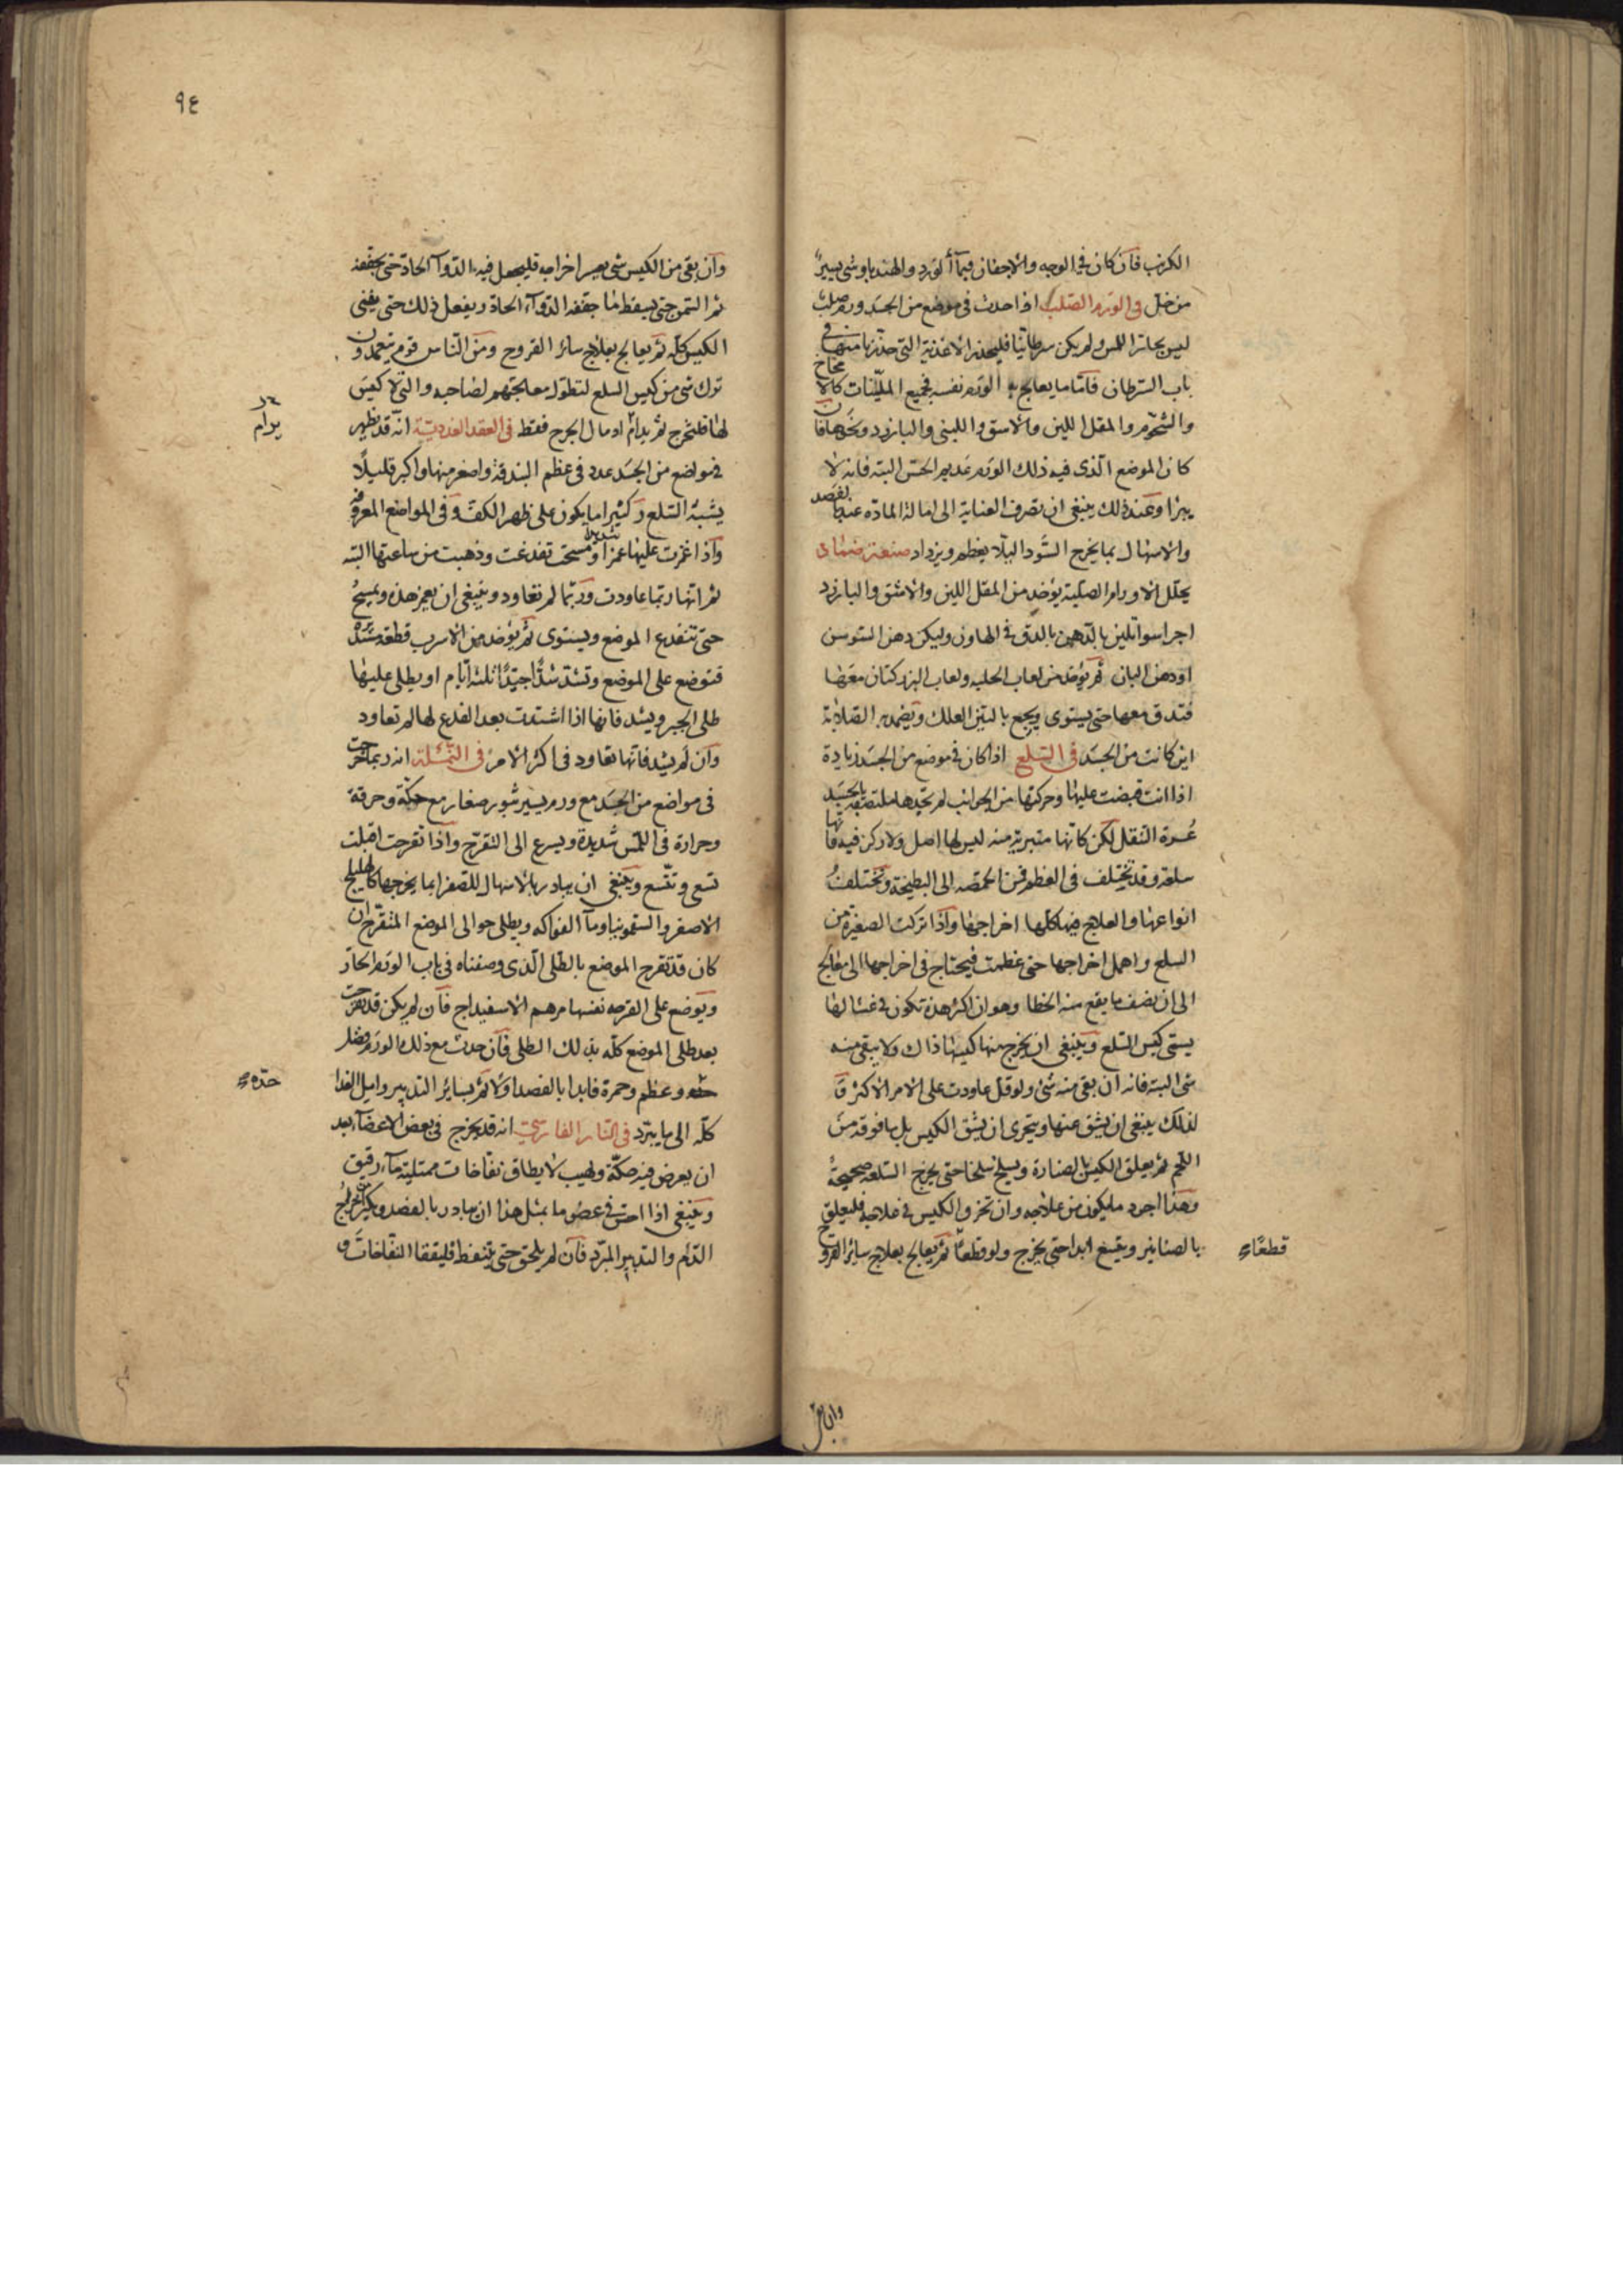 الكرنب فان كان في الوجه والاجفان فبماء الورد والهندبا وشى يسير
من خل في الورم الصلب اذا حدث في موضع من الجسد ورم صلب
ليس بحار اللمس ولم يكن سرطانيا فليحذر الاغذية التي حذرنا منها في
باب السرطان فاما ما يعالج به الورم نفسه فجميع الملينات كالامخاخ
والشحوم والمقل اللين والاشق واللبنى والبازرد ونحوها فان
كان الموضع الذى فيه ذلك الورم عديم الحس البتة فانه لا
يبرا وعند ذلك ينبغى ان تصرف العناية الى امالة المادة عنها بالفصد
والاسهال بما يخرج السودا ليلا يعظم ويزداد صنعة ضماد
يحلل الاورام الصلبة يوخذ من المقل اللين والاشق والبازرد
اجرا سوا تلين بالدهن بالدق في الهاون وليكن دهن السوسن
او دهن البان ثم يوخذ من لعاب الحلبه ولعاب البزر كتان معها
فتدق معها حتى يستوى ويجمع بالتين العلك ويضمد به الصلابة
اين كانت من الجسد في السلع اذا كان في موضع من الجسد زيادة
اذا انت قبضت عليها وحركتها من الجوانب لم تجدها ملتصقة بالجسد
عسرة التنقل لكن كانها متبرية منه ليس لها اصل ولا ركز فيه فانها
سلعة وقد تختلف في العظم فمن الحمصه الى البطيخة وتختلف
انواعها والعلاج فيها كلها اخراجها واذا تركت الصغيرة من
السلع واهمل اخراجها حتى عظمت فيحتاج في اخراجها الى معالج
الى ان نصف ما يقع منه الخطا وهو ان اكثر هذه تكون في غشا لها
يسمى كيس السلع وينبغى ان يخرج منها كيسها ذاك ولا يبقى منه
شى البتة فانه ان بقى منه شى ولو قل عاودت على الامر الاكثر و
لذلك ينبغى ان يشق عنها ويتحرى ان يشق الكيس بل ما فوقه من
اللحم ثم يعلق الكيس بالصنارة ويسلخ سلخا حتى يخرج السلعة صحيحة
وهذا اجود ما يكون من علاجه وان تخرق الكيس في علاجه فليعلق
بالصنانير ويتبع ابدا حتى يخرج ولو قطعا ثم يعالج بعلاج ساير القروح
قطعًا
وان بقى
٩٤
وان بقى من الكيس شى يعسر اخراجه فليجعل فيه الدوآ الحاد حتى يجففه
ثم السمن حتى يسقط ما جففه الدوآء الحاد ويفعل ذلك حتى يفنى
الكيس كله ثم يعالج بعلاج سائر القروح ومن الناس قوم يتعمدون
ترك شى من كيس السلع لتطول معالجتهم لصاحبه والتى لا كيس
لها فلتخرج ثم يدام ادمال الجرح فقط في العقد الغددية انه قد يظهر
يرام
في مواضع من الجسد عدد في عظم البندقة واصغر منها واكبر قليلًا
يشبه السلع وكثيرا ما يكون على ظهر الكف وفى المواضع المعرقة
واذا غمزت عليها غمزا شديدا ومسحت تفدغت وذهبت من ساعتها البته
ثم انها ربما عاودت وربما لم تعاود وينبغى ان يغمز هذه ويمسح
حتى تنفدع الموضع ويستوى ثم يوخذ من الاسرب قطعة
فتوضع على الموضع وتشد شدًا جيدًا ثلثة ايام او يطلى عليها
طلى الجبر ويشد فانها اذا اشتدت بعد الفدع لها لم تعاود
وان لم يشد فانها تعاود في اكثر الامر في النملة انه ربما خرجت
في مواضع من الجسد مع ورم يسير بثور صغار مع حكة وحرقة
وحرارة في اللمس شديدة ويسرع الى التقرح واذا تقرحت اقبلت
تسعى وتتسع وينبغى ان يبادر بالاسهال للصفرا بما يخرجها كالهليلج
الاصفر والسقمونيا ومآ الفواكه ويطلى حوالى الموضع المتقرح ان
كان قد تقرح الموضع بالطلى الذى وصفناه في باب الورم الحار
ويوضع على القرحه نفسها مرهم الاسفيداج فان لم يكن قد تقرحت
بعد طلى الموضع كله بذلك الطلى فان حدث مع ذلك الورم فضل
حده وعظم وحمرة فابدا بالفصد اولا ثم بسائر التدبير وامل الغذا
حدّة
كله الى ما يبرد في النار الفارسي انه قد يخرج في بعض الاعضآ بعد
ان يعرض فيه حكة ولهيب لا يطاق نفاخات ممتلية مآء رقيق
وينبغى اذا احس في عضو ما بمثل هذا ان يبادر بالفصد ويكثر اخراج
الدم والتدبير المبرد فان لم يلحق حتى يتنفط فليفقا النفاخات و